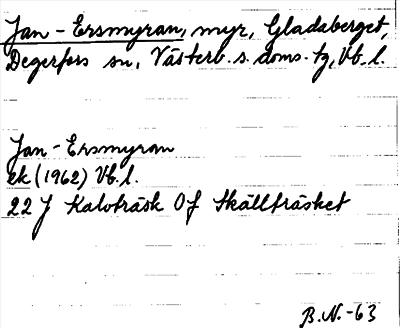 Jan-Ersmyran, myr, Gladaberget,
Degerfors sn, Västerb. s. doms. tg, Vb. l.
Jan-Ersmyran
ek (1962) Vb. l.
22 J Kalvträsk 0f Skällträsket
B.N.-63